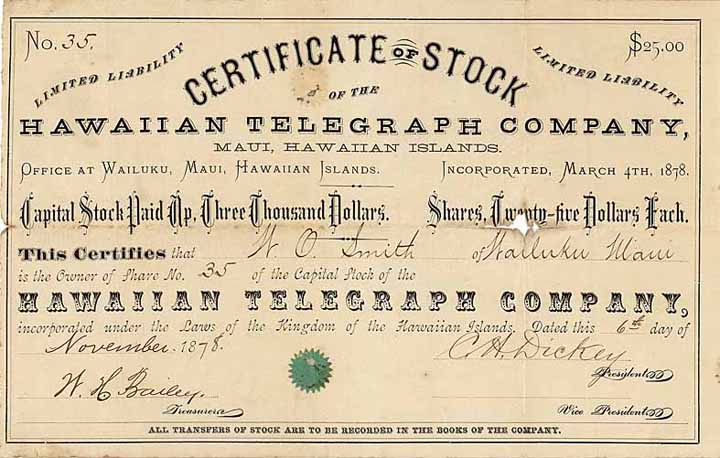 No. 35. $25.00
LIMITED LIABILITY CERTIFICATE OF STOCK LIMITED LIABILITY
OF THE
HAWAIIAN TELEGRAPH COMPANY,
MAUI, HAWAIIAN ISLANDS.
OFFICE AT WAILUKU, MAUI, HAWAIIAN ISLANDS. INCORPORATED, MARCH 4TH, 1878.
Capital Stock Paid Up, Three Thousand Dollars. Shares, Twenty-five Dollars Each.
This Certifies that W. O. Smith of Wailuku Maui
is the Owner of Share No. 35 of the Capital Stock of the
HAWAIIAN TELEGRAPH COMPANY,
incorporated under the Laws of the Kingdom of the Hawaiian Islands. Dated this 6th day of
November. 1878.
C. H. Dickey
President
W. H. Bailey.
Treasurer Vice President
ALL TRANSFERS OF STOCK ARE TO BE RECORDED IN THE BOOKS OF THE COMPANY.